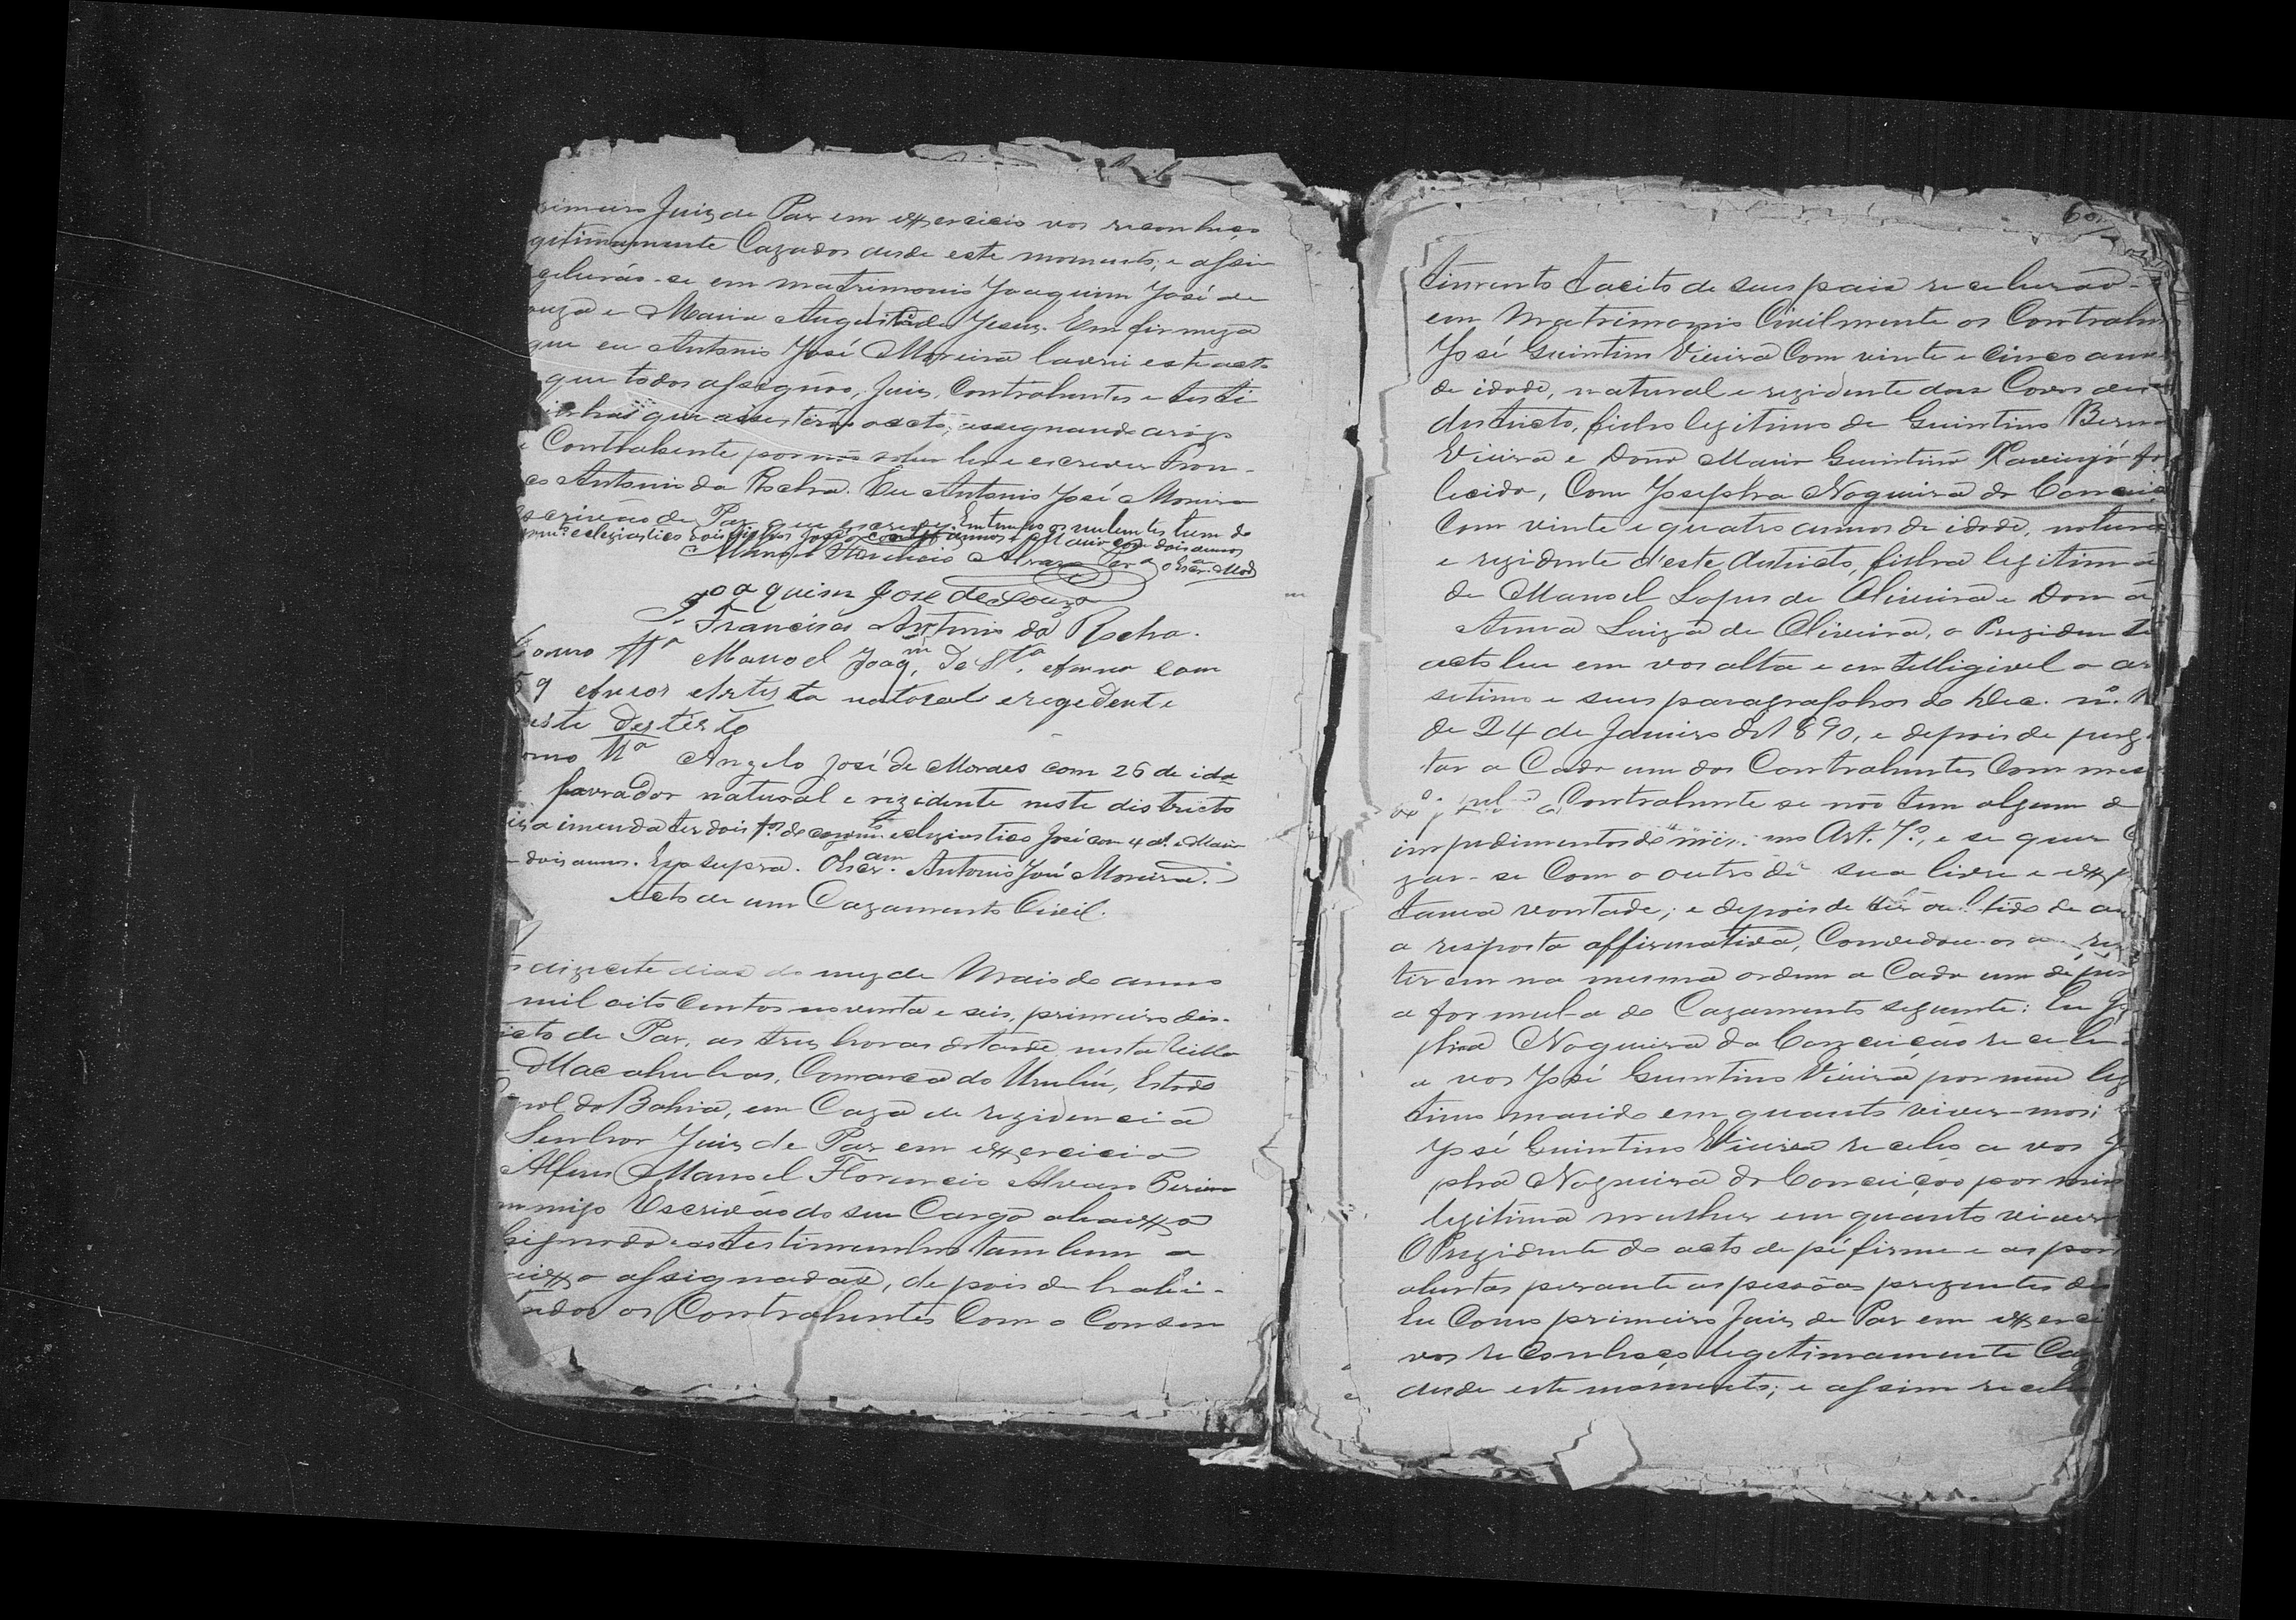 rimeiro Juiz de Paz em exxercicio vos reconheço
gitimamente Cazados desde este momento; e assim
ceberão-se em matrimonio Joaquim José de
ouza e Maria Augusta de Jesus. Em firmeza
que eu Antonio José Moreira lavrei este acto
que todos assignão, Juiz, Contrahentes e testi-
inhas que assestirão o acto; assegnando a rogo
a Contrahente por não saber ler e escrever Fran-
co Antonio da Rocha. Eu Antonio José Moreira
scrivão de Paz que escrevy. Em tempo os nubentes tem do
eclegiastico dois filhos José com 4 annos e Maria com dois annos
Manoel Florencio Alvares Per.ª
Joaquim José de Souza
Francisco Antonio da Rocha.
Como tt.ª Manoel Joaq.m de St.ª Anna com
59 Annos Artista natoral e rezedente
neste desterto
omo tt.ª Angelo José de Moraes com 26 de ida
lavrador natural e rezidente neste districto
dois f.os de eclegiastico José com 4 a. e Maria
dois annos. Era supra. O Escr.am Antonio José Moreira.
Acto de um Cazamento Civil.
s dizecete dias do mez de Maio do anno
mil oito Centos noventa e seis, primeiro dis-
icto de Paz, as trez horas da tarde nesta Villa
Macahubas, Comarca do Urubú, Estado
da Bahia, em Caza de rezidencia
Senhor Juiz de Paz em exxercicio
Alferes Manoel Florencio Alvares Pereira
mmigo Escrivão do seu Cargo abaixxo
signado e as testimunhas tambem a
aixxo assignadas, depois de habi-
tados os Contrahentes Com o Consen
60
timento tacito de seus pais receberão-
em Matrimonio Civilmente os Contrahen
José Guintino Vieira Com vinte e cinco anno
de idade, natural e rezidente das Covas des
destricto, filho legitimo de Guintino Bern
Vieira e Dona Maria Guintina já fa
lecida, Com Josepha Nogueira da Conceiç
Com vinte e quatro annos de idade, natura
e rezidente d'este destricto, filha legitima
de Manoel Lopes de Oliveira e Dona
Anna Luiza de Oliveira, o Prezidente
acto leu em vos alta e entelligivel o ar
setimo e seus paragraphos do Dec. nº. 1
de 24 de Janeiro de 1890, e depois de purg
tar a Cada um dos Contrahentes Com mes
Contrahente se não tem algum d
impedimentos do no Art. 7º., e se quer C
zar-se Com o outro de sua livre e exxp
tania vontade; e depois de ter ou tido de am
a resposta affirmativa, Convidou-os a re
tirem na mesma ordem a Cada um de per
a formula do Cazamento seguinte: Eu Jo
phina Nogueira da Conceição recebo
a vos José Guintino Vieira por meu leg
timo marido em quanto viver-mos;
José Guintino Vieira recebo a vos J
pha Nogueira da Conceição por minh
legitima mulher em quanto viver
O Prezidente do acto de pé firme e as por
abertas perante as pessôas prezentes di
Eu Como primeiro Juiz de Paz em exxerci
vos reConheço legetimamente Ca
desde este momento; e assim recebe